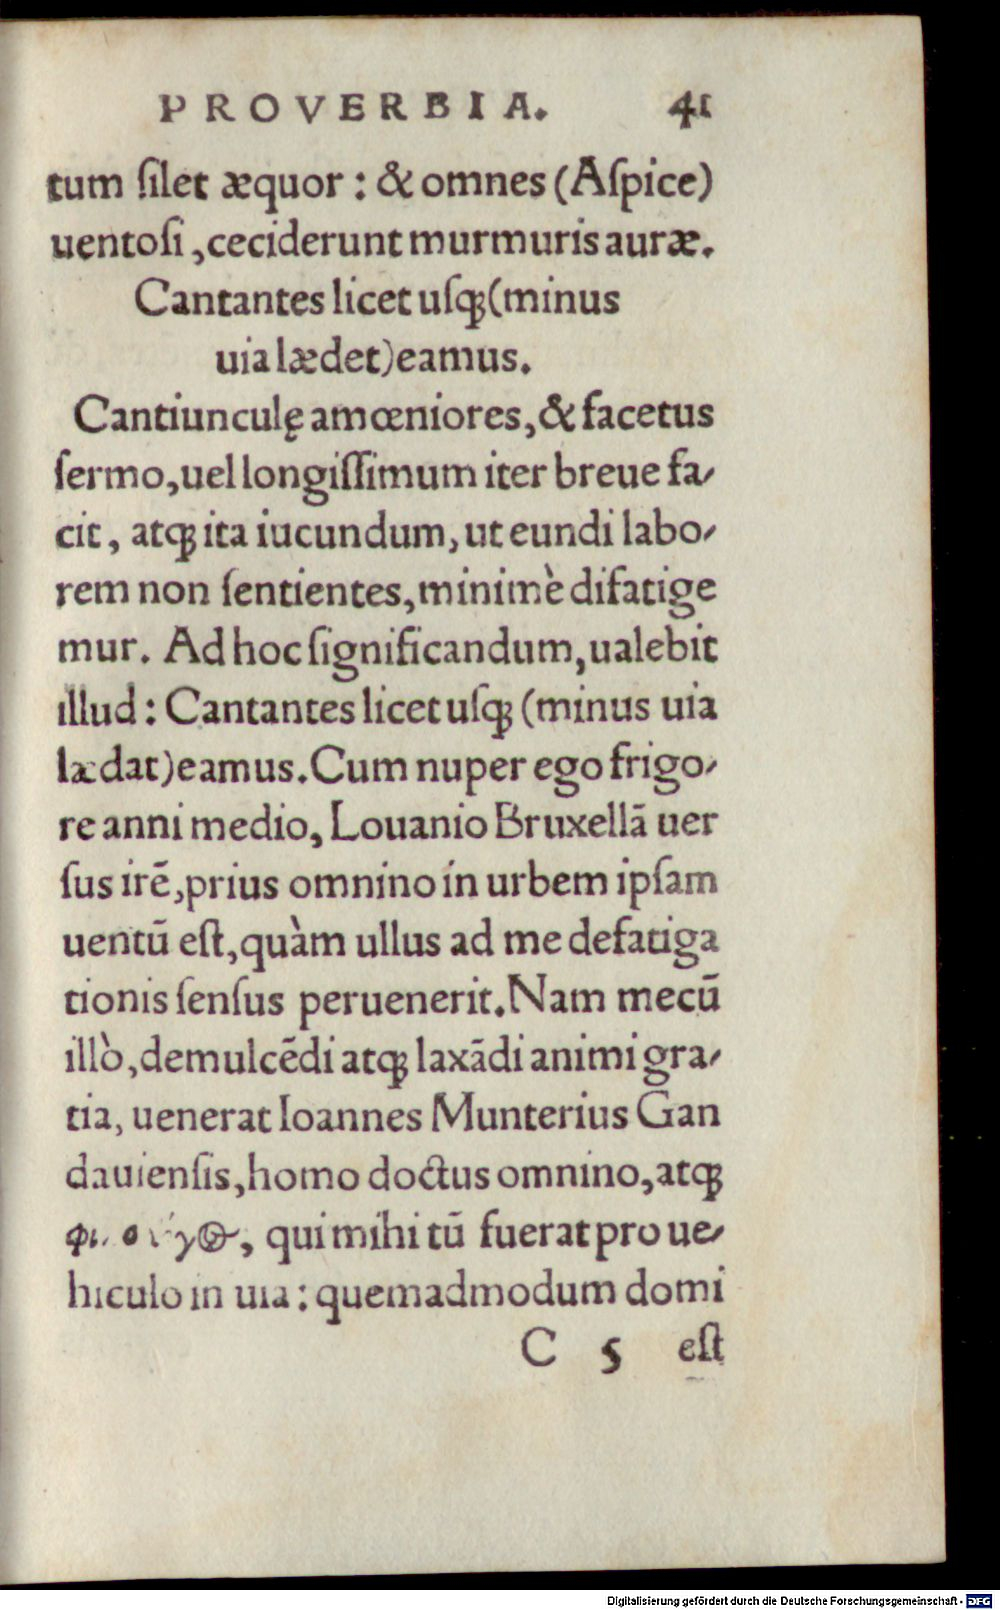 PROVERBIA. 41
tum silet æquor : & omnes (Aspice)
uentosi, ceciderunt murmuris auræ.
Cantantes licet usqꝫ (minus
uia lædet) eamus.
Cantiunculę amœniores, & facetus
sermo, uel longissimum iter breue fa-
cit, atqꝫ ita iucundum, ut eundi labo-
rem non sentientes, minimè difatige
mur. Ad hoc significandum, ualebit
illud : Cantantes licet usqꝫ (minus uia
lædat) eamus. Cum nuper ego frigo-
re anni medio, Louanio Bruxellā uer
sus irē, prius omnino in urbem ipsam
uentū est, quàm ullus ad me defatiga
tionis sensus peruenerit. Nam mecū
illò, demulcēdi atqꝫ laxādi animi gra-
tia, uenerat Ioannes Munterius Gan
dauiensis, homo doctus omnino, atqꝫ
, qui mihi tū fuerat pro ue-
hiculo in uia : quemadmodum domi
C 5 est
Digitalisierung gefördert durch die Deutsche Forschungsgemeinschaft - DFG